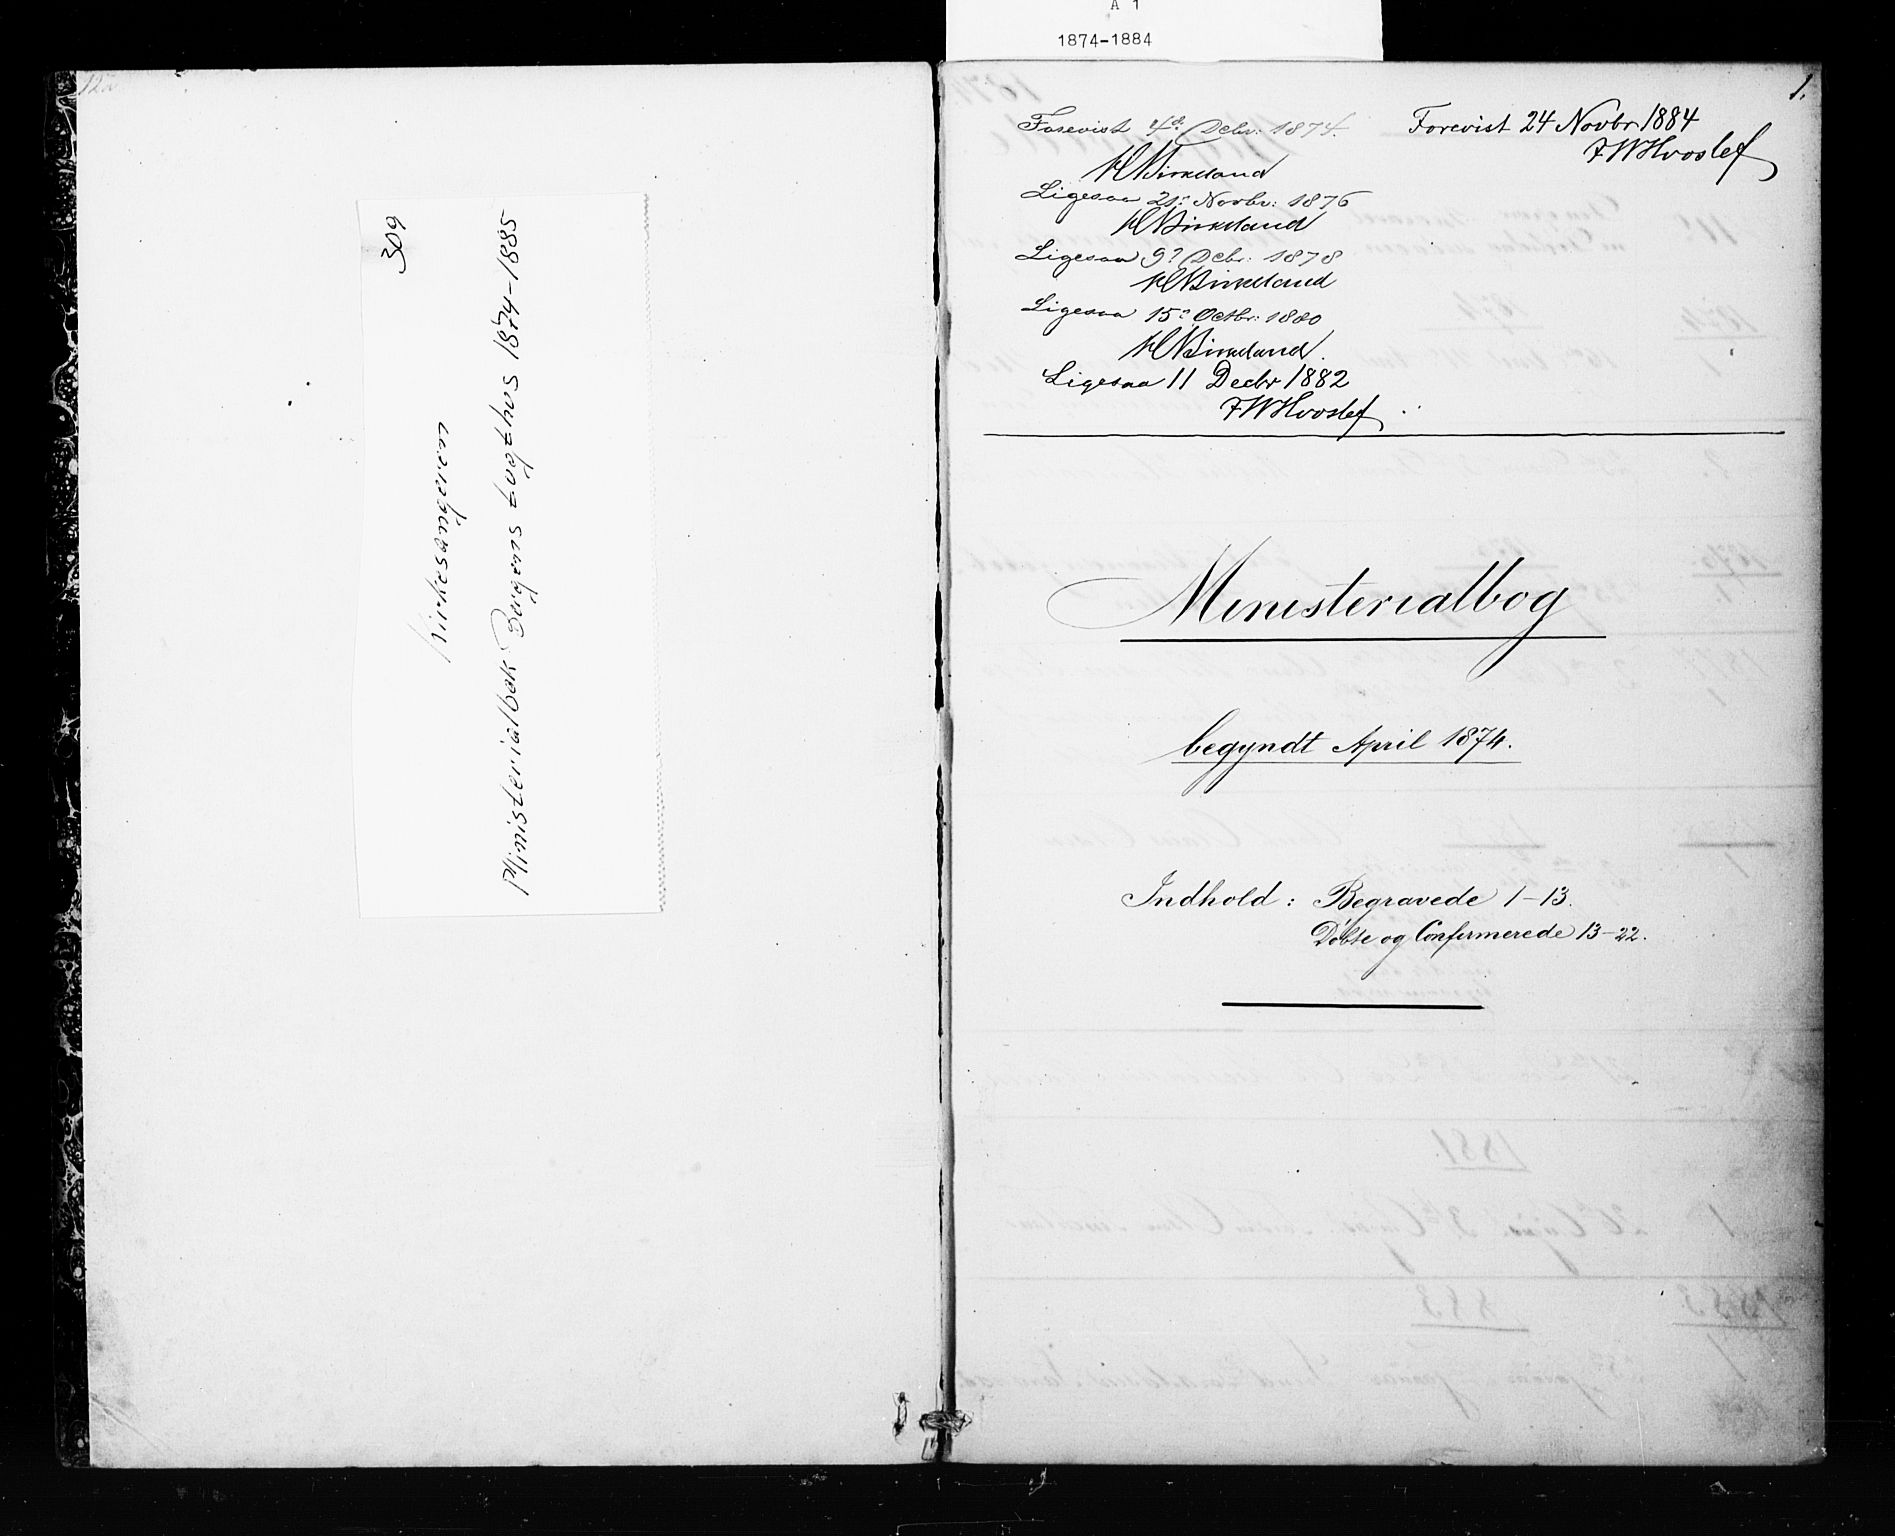 A 1
1874-1884
309
Kirkesangeren
Ministerialbok Bergens tugthus 1874-1885
1.
Forevist 4de Decbr: 1874.
Birkeland
Ligesaa 21: Novbr: 1876
Birkeland
Ligesaa 9: Decbr: 1878
Birkeland
Ligesaa 15: Octbr: 1880
Birkeland.
Ligesaa 11 Decbr 1882
FWHvoslef
Forevist 24 Novbr 1884
FWHvoslef
Ministerialbog
begyndt April 1874.
Indhold: Begravede 1-13.
Døbte og Confirmerede 13-22.